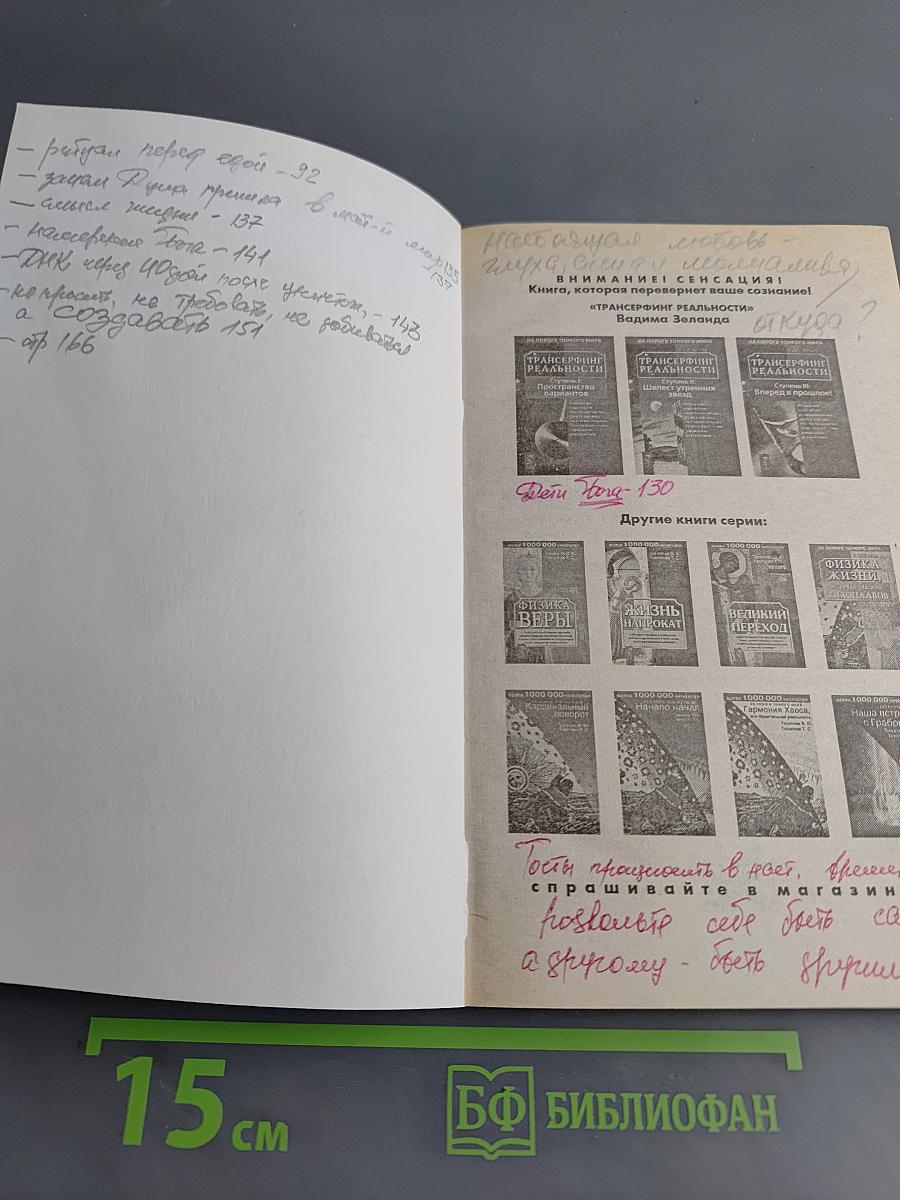 – ритуал перед едой – 92
– зачем Душа пришла в мат-й мир 135
137
– смысл жизни – 137
– намерение Бога – 141
– ДНК через 40 дней после – 143
– не просить, не требовать, не добиваться
а создавать 151
– стр 166
Настоящая любовь –
глуха, слепа и молчалива,
ВНИМАНИЕ! СЕНСАЦИЯ!
Книга, которая перевернет ваше сознание!
откуда?
«ТРАНСЕРФИНГ РЕАЛЬНОСТИ»
Вадима Зеланда
НА ПОРОГЕ ТОНКОГО МИРА
ТРАНСЕРФИНГ РЕАЛЬНОСТИ
Ступень I:
Пространство
вариантов
НА ПОРОГЕ ТОНКОГО МИРА
ТРАНСЕРФИНГ РЕАЛЬНОСТИ
Ступень II:
Шелест утренних
звезд
НА ПОРОГЕ ТОНКОГО МИРА
ТРАНСЕРФИНГ РЕАЛЬНОСТИ
Ступень III:
Вперед в прошлое!
Дети Бога – 130
Другие книги серии:
ФИЗИКА
ВЕРЫ
ЖИЗНЬ
НАПРОКАТ
ВЕЛИКИЙ
ПЕРЕХОД
ФИЗИКА
ЖИЗНИ
БОЛЕЕ 1000 000 ЧИТАТЕЛЕЙ
Кардинальный
поворот
БОЛЕЕ 1000 000 ЧИТАТЕЛЕЙ
Начало начал
БОЛЕЕ 1000 000 ЧИТАТЕЛЕЙ
Гармония Хаоса,
или Фрактальная реальность
Тихоплав В. Ю.
Тихоплав Т. С.
БОЛЕЕ 1000 000
Наша встр
с Грабо
Тосты произносить в наст. време
спрашивайте в магазин
позвольте себе быть со
а другому – быть другим
15 см
БФ БИБЛИОФАН